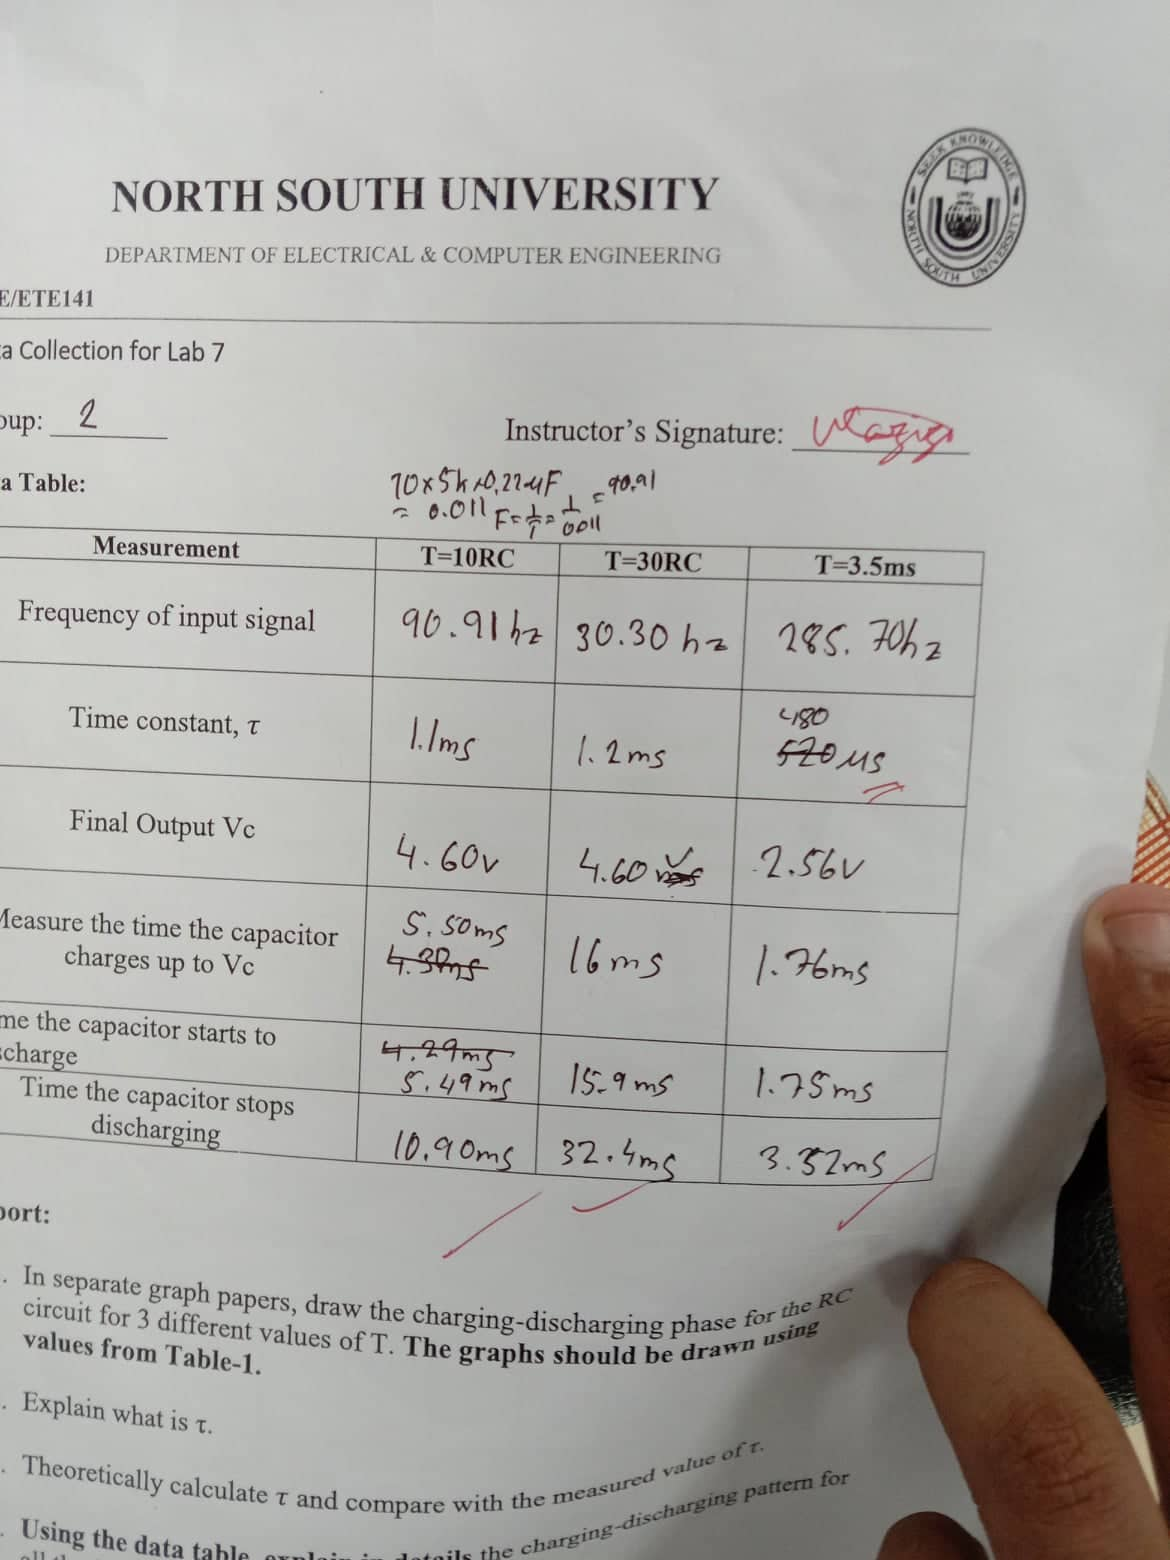 SEEK KNOWLEDGE
NORTH SOUTH UNIVERSITY
NORTH SOUTH UNIVERSITY
DEPARTMENT OF ELECTRICAL & COMPUTER ENGINEERING
E/ETE141
ta Collection for Lab 7
oup: 2
Instructor's Signature:
a Table:
10x5kx0.22uF
= 0.011 F=1/T=1/0.011 =90.91
Measurement T=10RC T=30RC T=3.5ms
Frequency of input signal 90.91hz 30.30hz 285.70hz
Time constant, τ 1.1ms 1.2ms 480 520 us
Final Output Vc 4.60v 4.60 v 2.56v
Measure the time the capacitor
charges up to Vc
5.50ms 4.30ms 16ms 1.76ms
me the capacitor starts to
scharge
4.29ms 5.49ms 15.9ms 1.75ms
Time the capacitor stops
discharging
10.90ms 32.4ms 3.32ms
port:
. In separate graph papers, draw the charging-discharging phase for the RC
circuit for 3 different values of T. The graphs should be drawn using
values from Table-1.
. Explain what is τ.
. Theoretically calculate τ and compare with the measured value of τ.
. Using the data table, explain in details the charging-discharging pattern for